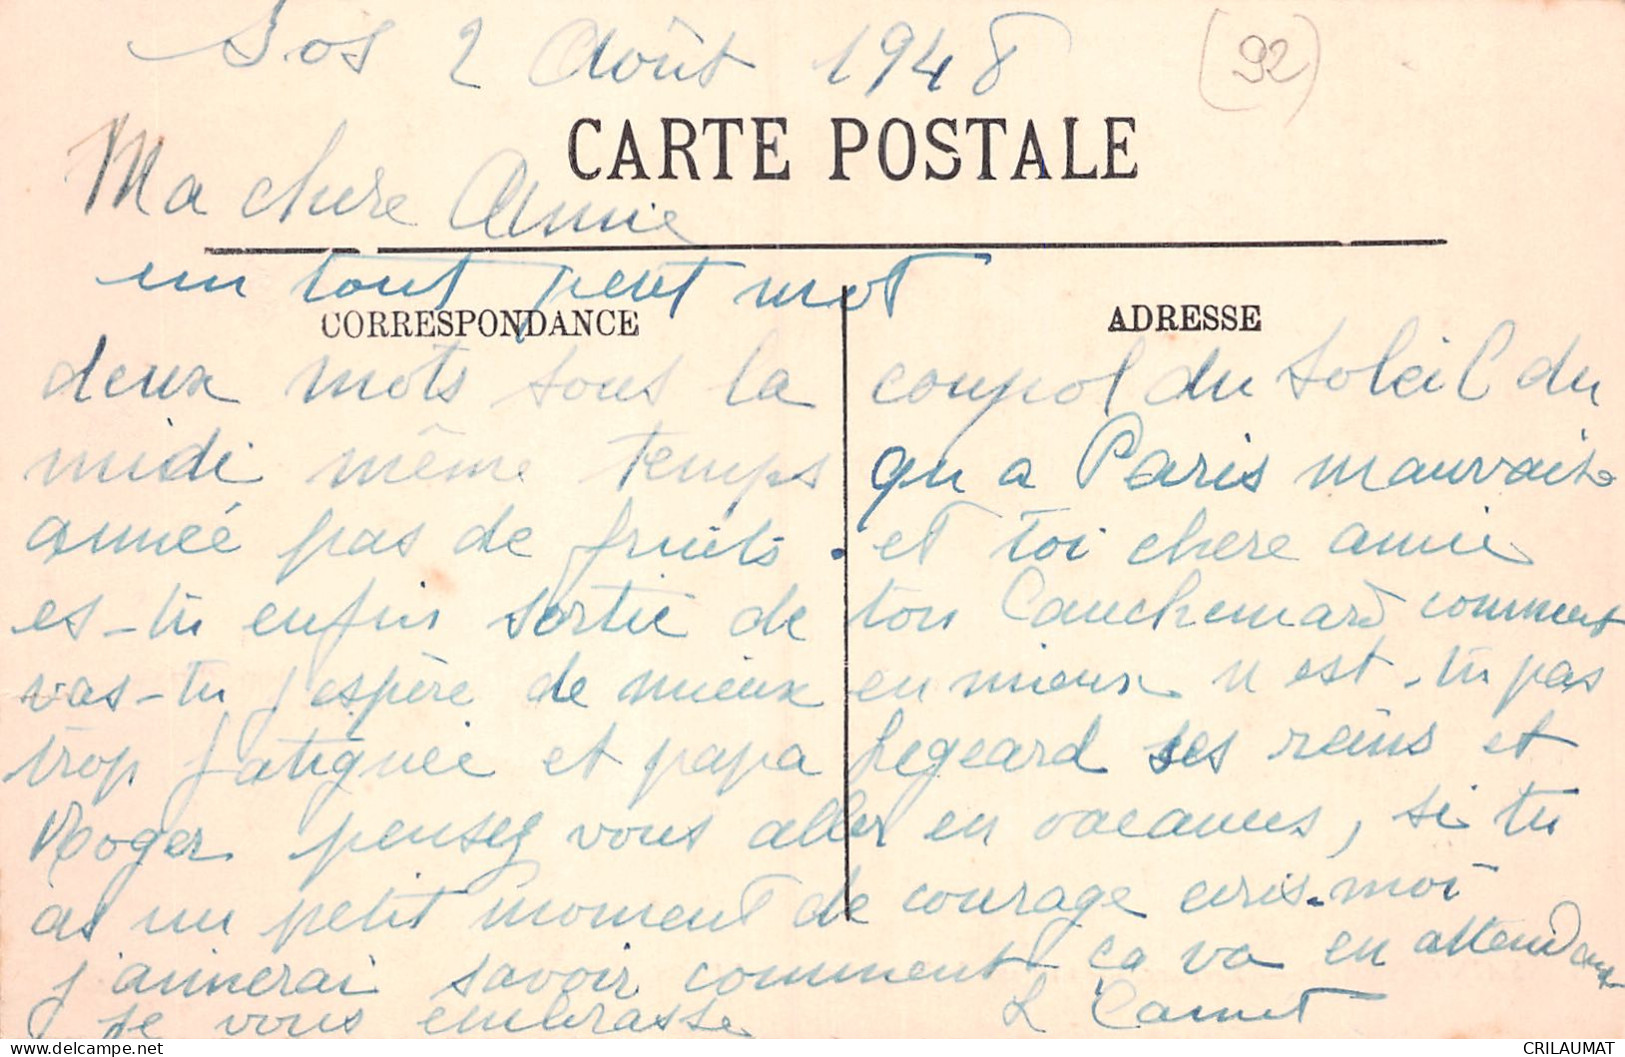 Sos 2 Août 1948 (92)
CARTE POSTALE
Ma chere Amie
un tout petit mot
CORRESPONDANCE ADRESSE
deux mots sous la coupol du soleil du
midi même temps qu a Paris mauvaise
année pas de fruits. et toi chere amie
es-tu enfin sortie de ton Cauchemard comment
vas-tu j'espère de mieux en mieux n est-tu pas
trop fatiguée et papa Legeard ses reins et
Roger pensez vous aller en vacances, si tu
as un petit moment de courage ecris-moi
j'aimerai savoir comment ça va en attendant
je vous embrasse L Carnet
www.delcampe.net CRILAUMAT